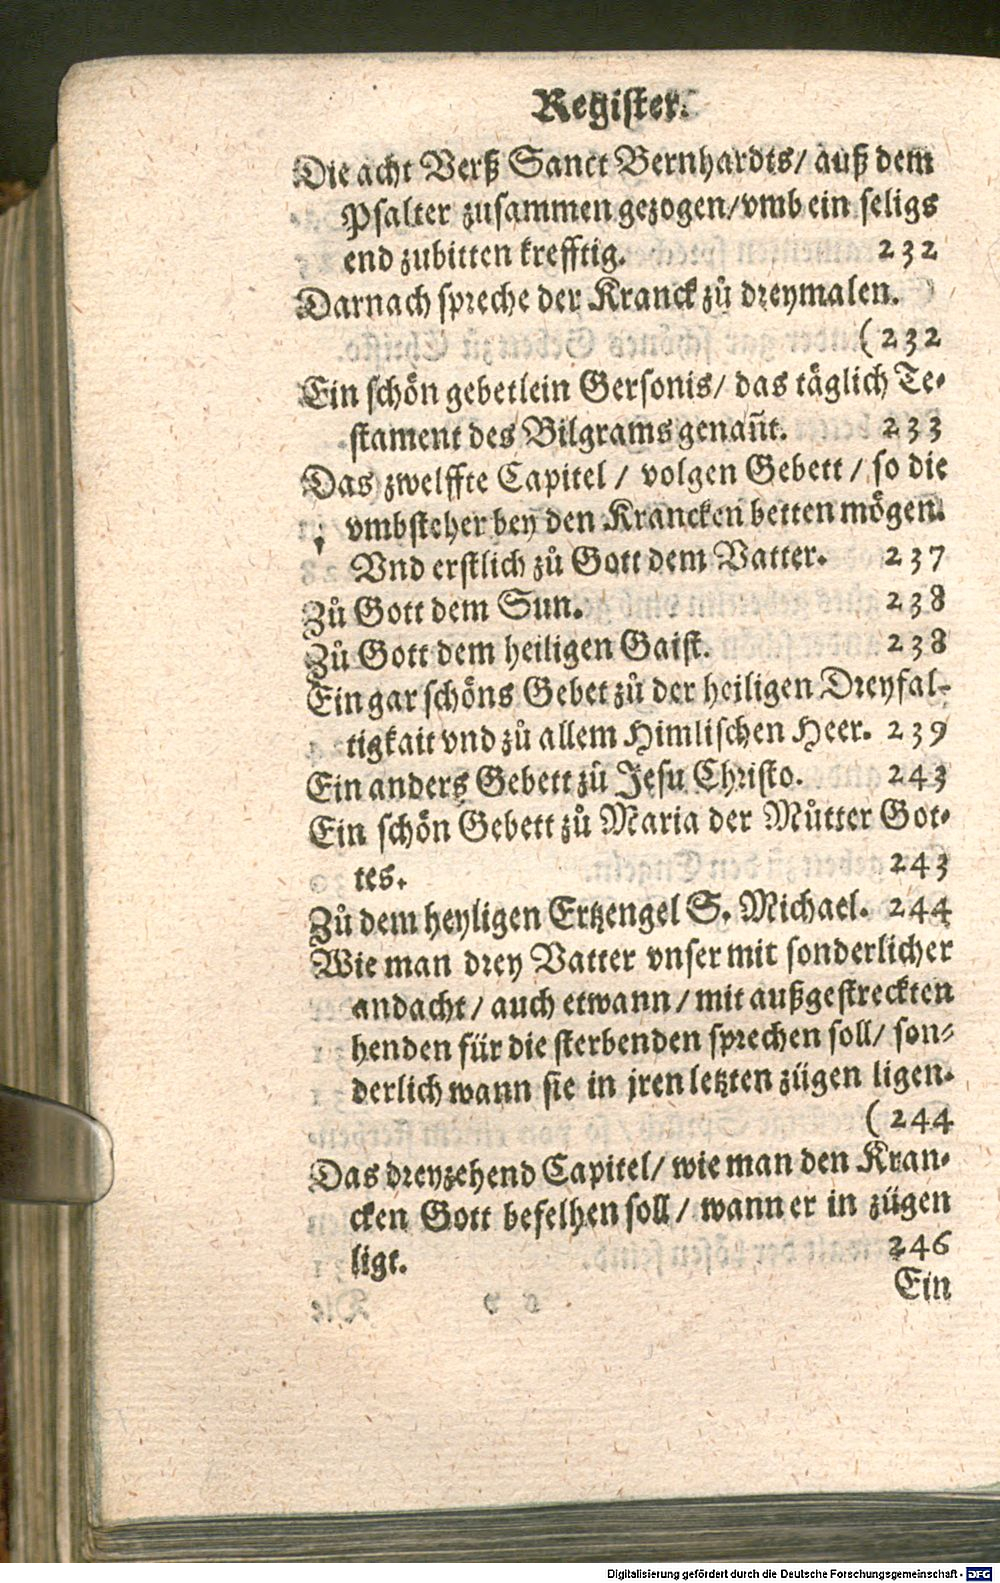 Register.
Die acht Verß Sanct Bernhardts/ auß dem
Psalter zusammen gezogen/vmb ein seligs
end zubitten krefftig. 232
Darnach spreche der Kranck zů dreymalen.
(232
Ein schön gebetlein Gersonis/ das täglich Te-
stament des Bilgrams genañt. 233
Das zwelffte Capitel / volgen Gebett / so die
vmbsteher bey den Krancken betten mögen.
Vnd erstlich zů Gott dem Vatter. 237
Zů Gott dem Sun. 238
Zů Gott dem heiligen Gaist. 238
Ein gar schöns Gebet zů der heiligen Dreyfal-
tigkait vnd zů allem Himlischen Heer. 239
Ein anders Gebett zů Jesu Christo. 243
Ein schön Gebett zů Maria der Můtter Got-
tes. 243
Zů dem heyligen Ertzengel S. Michael. 244
Wie man drey Vatter vnser mit sonderlicher
andacht / auch etwann / mit außgestreckten
henden für die sterbenden sprechen soll/ son-
derlich wann sie in jren letzten zügen ligen.
(244
Das dreyzehend Capitel/ wie man den Kran-
cken Gott befelhen soll / wann er in zügen
ligt. 246
Ein
Digitalisierung gefördert durch die Deutsche Forschungsgemeinschaft - DFG